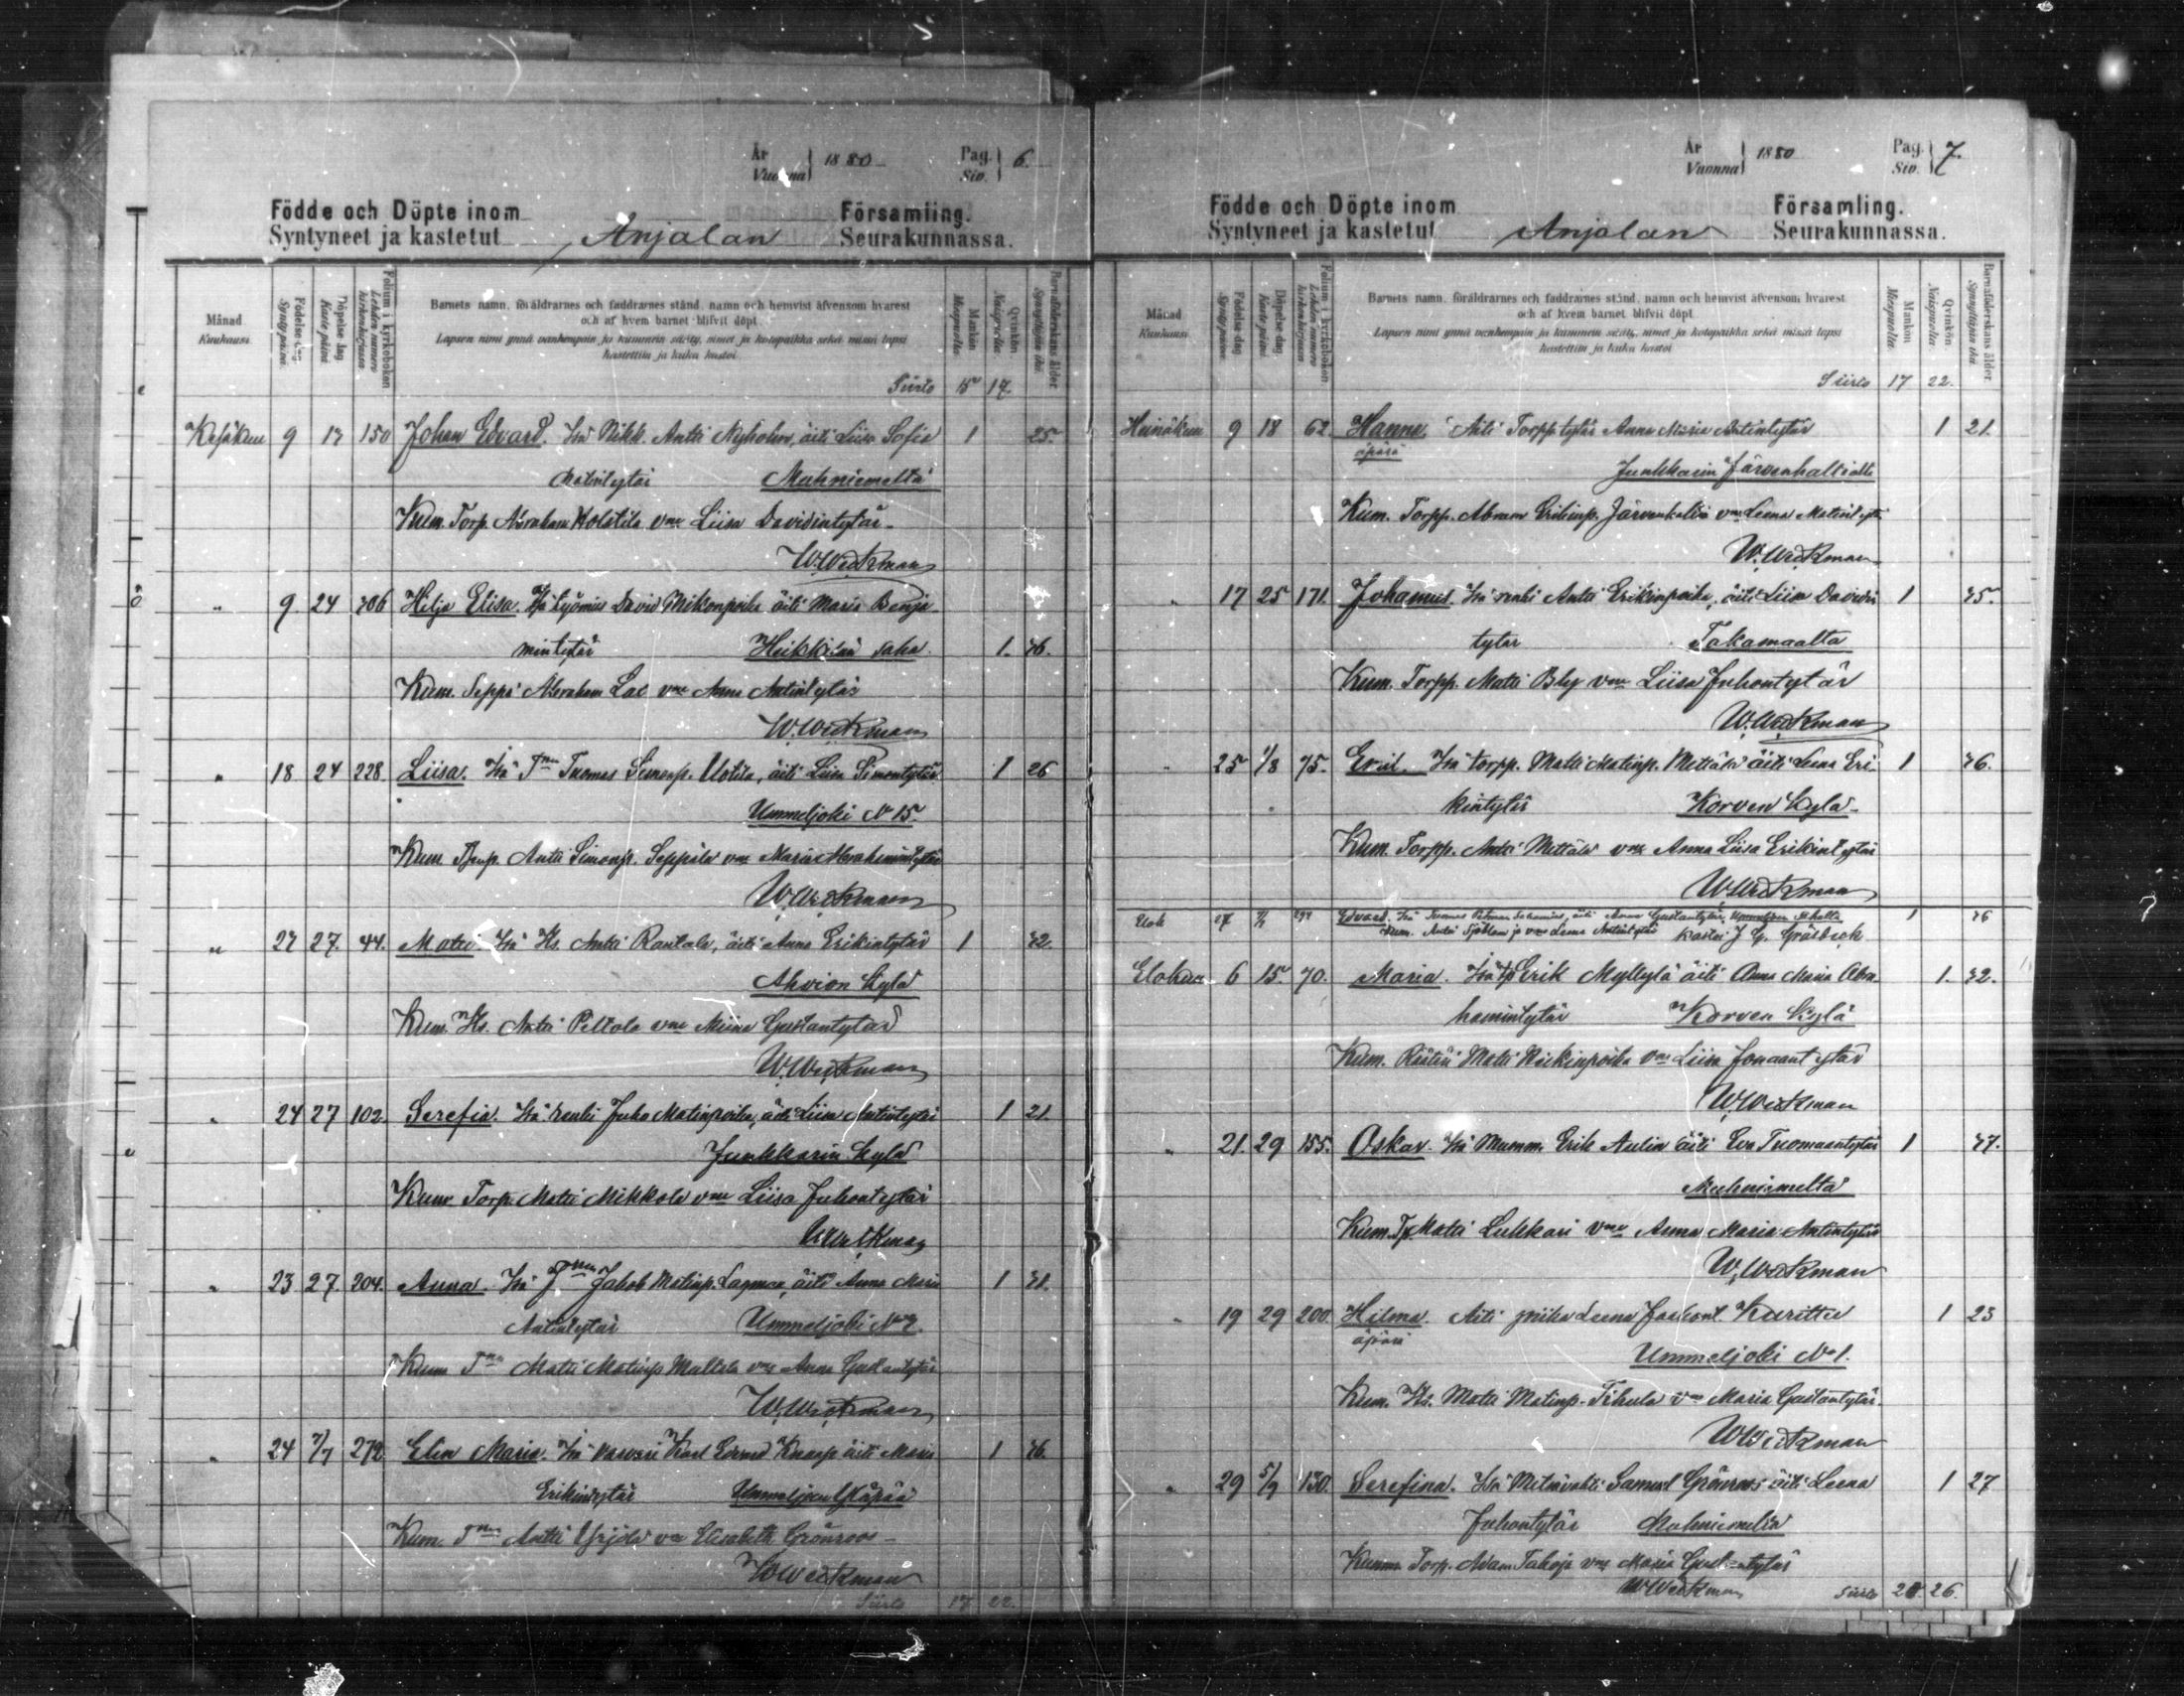 År
Vuonna } 1880
Pag.
Siv. } 6.
Födde och Döpte inom
Syntyneet ja kastetut
Anjalan
Församling.
Seurakunnassa.
Månad
Kuukausi.
Födelse dag
Syntypäivä.
Döpelse dag
Kastepäivä.
Folium i kyrkoboken
Lehden numero kirkonkirjassa.
Barnets namn, föräldrarnes och faddrarnes stånd, namn och hemvist äfvensom hvarest
och af hvem barnet blifvit döpt.
Lapsen nimi ynnä vanhempain ja kummein sääty, nimet ja kotopaikka sekä missä lapsi
kastettiin ja kuka kastoi.
Mankön
Miespuolia.
Qvinkön
Naispuolia.
Barnaföderskans ålder
Synnyttäjän ikä.
Siirto 15 17.
Kesäkuu 9 17 150 Johan Edvard. Isä Nikk. Antti Nyholm, äiti Liisa Sofia 1 25.
Matintytär Muhniemeltä
Kum. Torp. Abraham Holstila vmo Liisa Davidintytär
W. Weckman
" 9. 24 306 Hilja Elisa. Isä työmies David Mikonpoika äiti Maria Benja
mintytär Heikkilän saha. 1. 36.
Kum. Seppä Abraham Lax vmo Anna Antintytär
W. Weckman
" 18 24 228 Liisa. Isä Tmn Tuomas Simonp. Uotila, äiti Liisa Simontytär 1 26
Ummeljoki No 15.
Kum. Antti Simonp. Seppälä vmo Maria Abrahamintytär
W. Weckman
" 27 27. 44. Matti. Isä Ts. Antti Rantala, äiti Anna Erikintytär 1 32.
Ahvion kylä
Kum. Ts. Antti Peltola vmo Miina Gustantytär
W. Weckman
" 24 27 102. Serefia. Isä renki Juho Matinpoika, äiti Liisa Antintytär 1 21
Junkkarin kylä
Kum. Torp. Matti Mikkola vmo Liisa Juhontytär
W. Weckman
" 23 27. 204. Anna. Isä Tmn Jakob Matinp. Lagman, äiti Anna Maria 1 31.
Antintytär Ummeljoki No 2.
Kum Tmn Matti Matinp. Mattila vmo Anna Gustantytär
W. Weckman
" 24 4/7 272 Elin Maria. Isä Karl Edvard äiti Maria 1 36.
Erikintytär Ummeljoen Yläpää
Kum. Tmn Antti Yrjölä vmo Elisabeth Grönroos
W Weckman
Siirto 17 22.
År
Vuonna } 1880
Pag.
Siv. } 7.
Födde och Döpte inom
Syntyneet ja kastetut
Anjalan
Församling.
Seurakunnassa.
Månad
Kuukausi.
Födelse dag
Syntypäivä.
Döpelse dag
Kastepäivä.
Folium i kyrkoboken
Lehden numero kirkonkirjassa.
Barnets namn, föräldrarnes och faddrarnes stånd, namn och hemvist äfvensom hvarest
och af hvem barnet blifvit döpt.
Lapsen nimi ynnä vanhempain ja kummein sääty, nimet ja kotopaikka sekä missä lapsi
kastettiin ja kuka kastoi.
Mankön
Miespuolia.
Qvinkön
Naispuolia.
Barnaföderskans ålder
Synnyttäjän ikä.
Siirto 17 22.
Heinäkuu 9 18 62. Hanna. Äiti Torpp.tytär Anna Maria Antintytär 1 21.
äpärä
Junkkarin Järvenkaltialta
Kum. Torpp. Abram Erikinp. Järvenkaltia vmo Leena Matintytär
W. Weckman
" 17 25 171. Johannes. Isä renki Antti Erikinpoika, äiti Liisa Davidin 1 35.
tytär Takamaalta
Kum. Torpp. Matti Bly vmo Liisa Juhontytär
W. Weckman
" 25 1/8 75. Ervid. Isä torpp. Matti Matinp. Mettälä äiti Leena Eri- 1 36.
kintytär Korven kylä
Kum. Torpp. Antti Mettälä vmo Anna Liisa Erikintytär
W. Weckman
Elok 27 Edvard. Isä äiti Anna Gustantytär, 1 36
Kum. Antti Sjöblom ja vmo Leena Antintytär kastoi J. G. Gråsbeck
Elokuu 6 15. 70. Maria. Isä Erik Myllylä äiti Anna Maria Abra- 1. 32.
hamintytär Korven kylä
Kum. Räätäli Matti Heikinpoika vmo Liisa Joonaantytär
W. Weckman
" 21. 29 155. Oskar. Isä Mumm. Erik Aulin äiti Eva Tuomaantytär 1 37.
Muhniemeltä
Kum. Tp. Matti Lukkari vmo Anna Maria Antintytär
W. Weckman
" 19 29 200. Hilma. Äiti piika Leena Jaakont. Kuritta 1 23
äpärä
Ummeljoki No 1.
Kum. Ts. Matti Matinp. Tihula vmo Maria Gustantytär.
W Weckman
" 29 5/9 130. Serefina. Isä Metsävahti Samuel Grönroos äiti Leena 1 27
Juhontytär Muhniemeltä
Kumm. Torp. Adam Takoja vmo Maria Gustantytär
W Weckman
Siirto 21. 26.